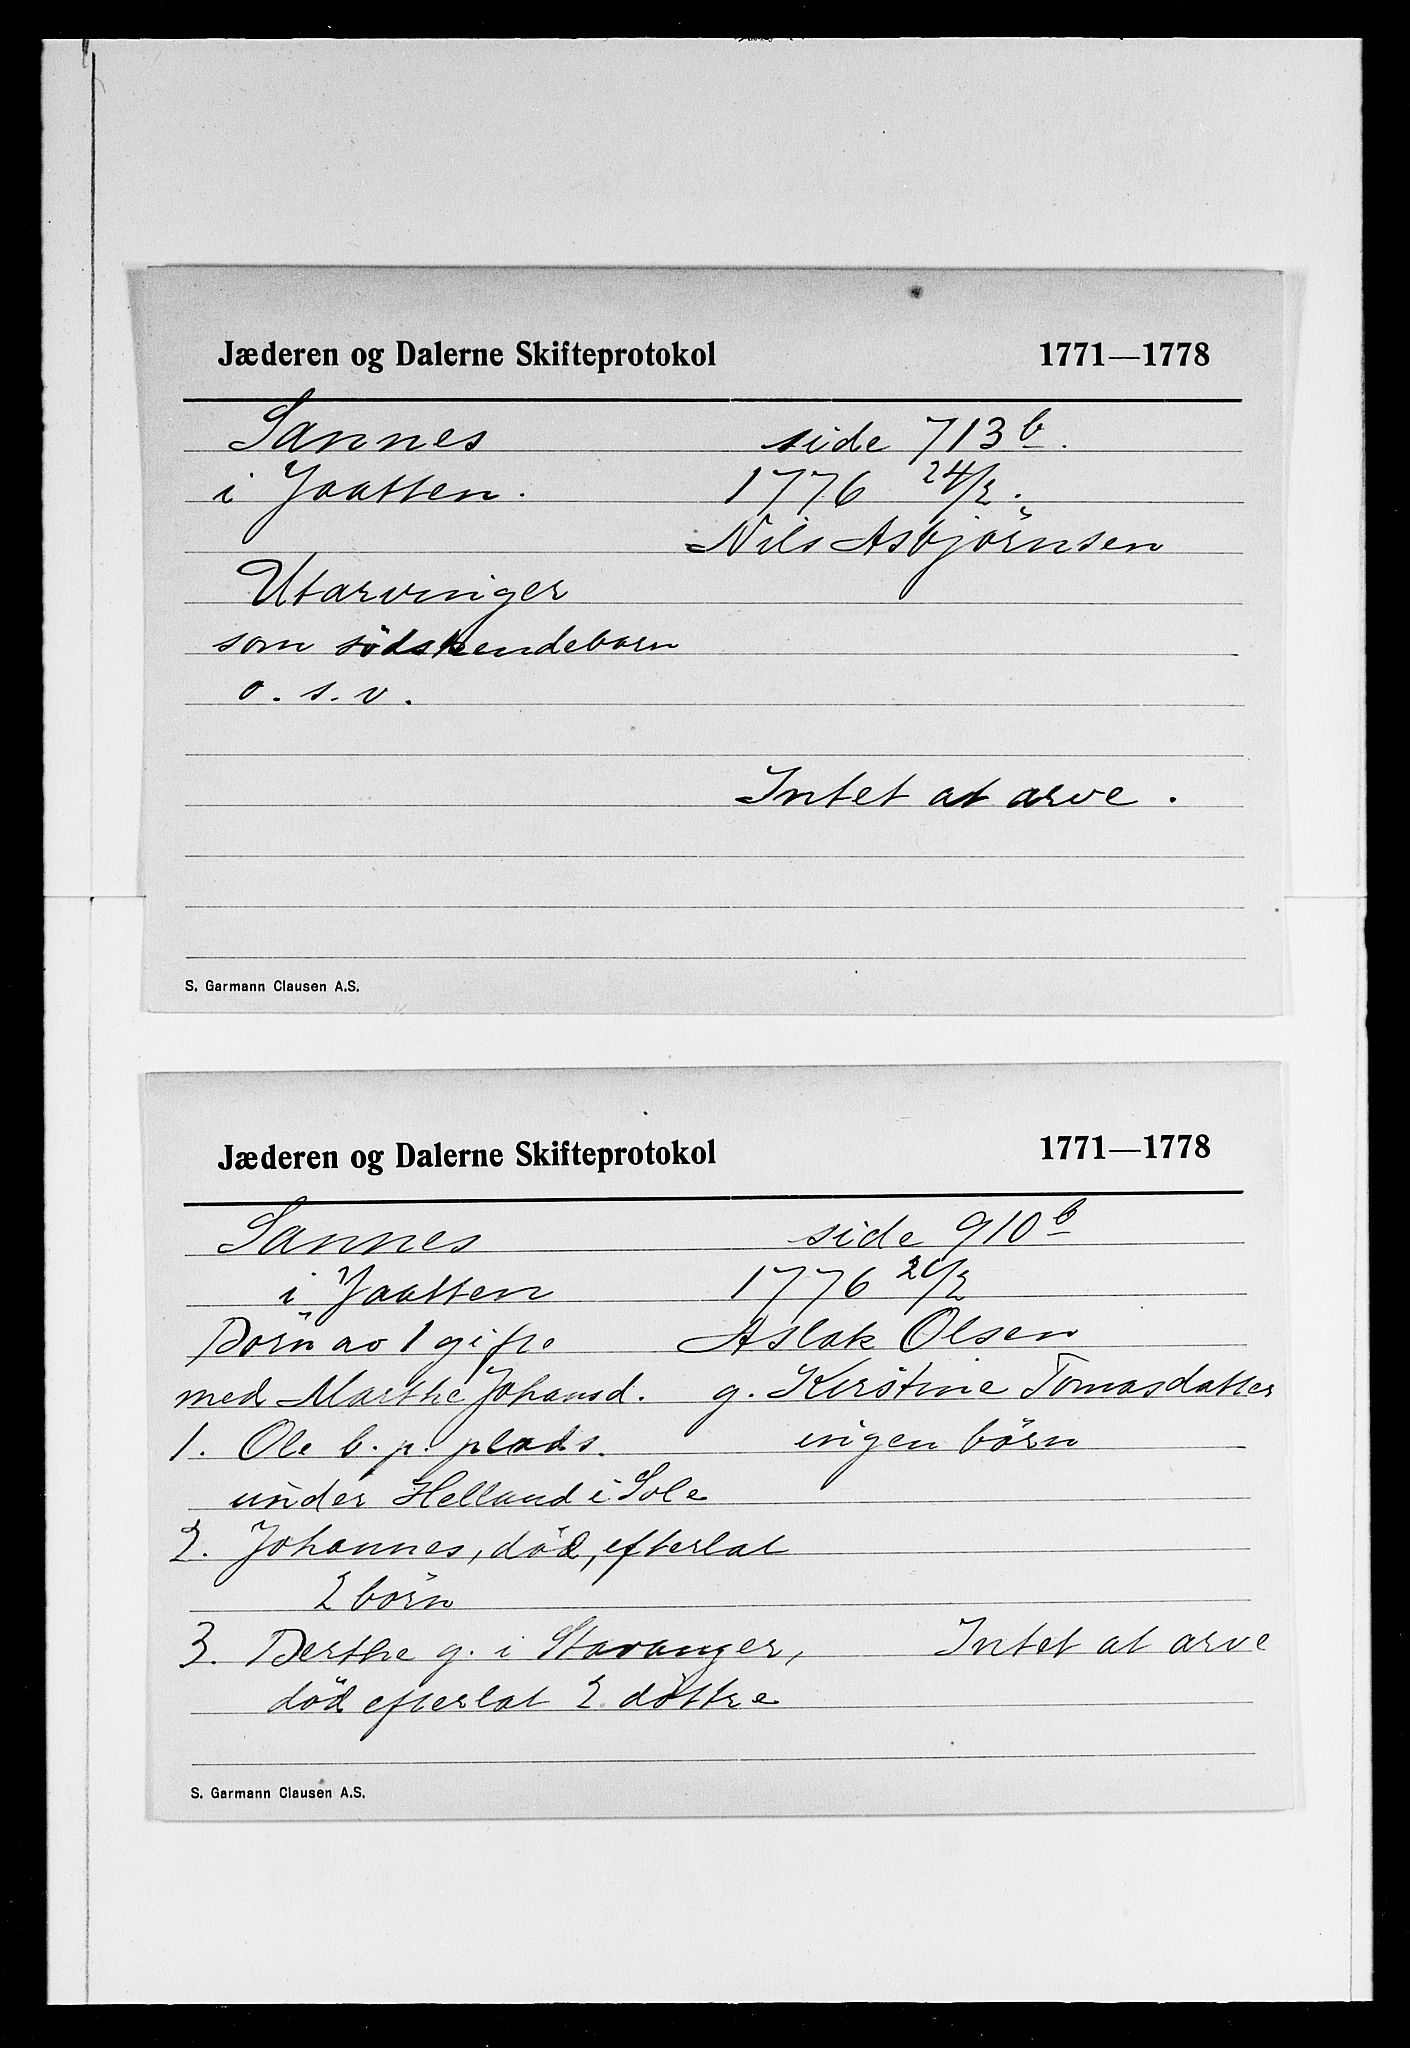 Jæderen og Dalerne Skifteprotokol 1771—1778
Sannes side 713 b.
i Jaatten. 1776 24/2.
Nils Asbjörnsen
Utarvinger
som södskendebarn
o. s. v.
Intet at arve.
S. Garmann Clausen A.S.
Jæderen og Dalerne Skifteprotokol 1771—1778
Sannes side 910 b
i Jaatten 1776 /2
Börn av 1 gifte Aslak Olsen
med Marthe Johansd. g. Kirstine Tomasdatter
1. Ole b. p. plads. ingen börn
under Helland i Sole
2. Johannes, död, efterlat
2 börn
3. Berthe g. i Stavanger, Intet at arve
död efterlat 2 döttre
S. Garmann Clausen A.S.